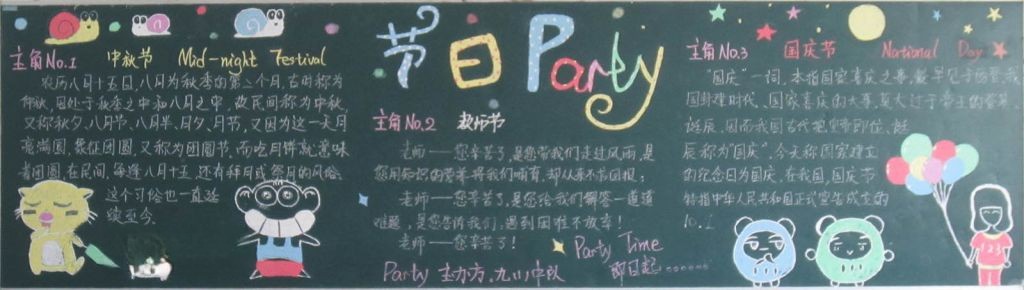 节日Party
主角No.1 中秋节 Mid-night Festival
农历八月十五日,八月为秋季的第二个月,古时称为
仲秋,因处于秋季之中和八月之中,故民间称为中秋,
又称秋夕、八月节、八月半、月夕、月节,又因为这一天月
亮满圆,象征团圆,又称为团圆节,而吃月饼就意味
着团圆,在民间,每逢八月十五,还有拜月或祭月的风俗,
这个习俗也一直延
续至今。
主角No.2 教师节
老师——您辛苦了,是您带我们走过风雨,是
您用知识的营养将我们哺育,却从来不求回报;
老师——您辛苦了,是您给我们解答一道道
难题,是您告诉我们:遇到困难不放弃!
老师——您辛苦了!
Party Time
即日起……
Party 主办方:九(1)中队
主角No.3 国庆节 National Day
"国庆"一词,本指国家喜庆之事,最早见于西晋,我
国封建时代、国家喜庆的大事,莫大过于帝王的登基、
诞辰,因而我国古代把皇帝即位、诞
辰称为"国庆"。今天称国家建立
的纪念日为国庆。在我国,国庆节
特指中华人民共和国正式宣告成立的
10.1
123